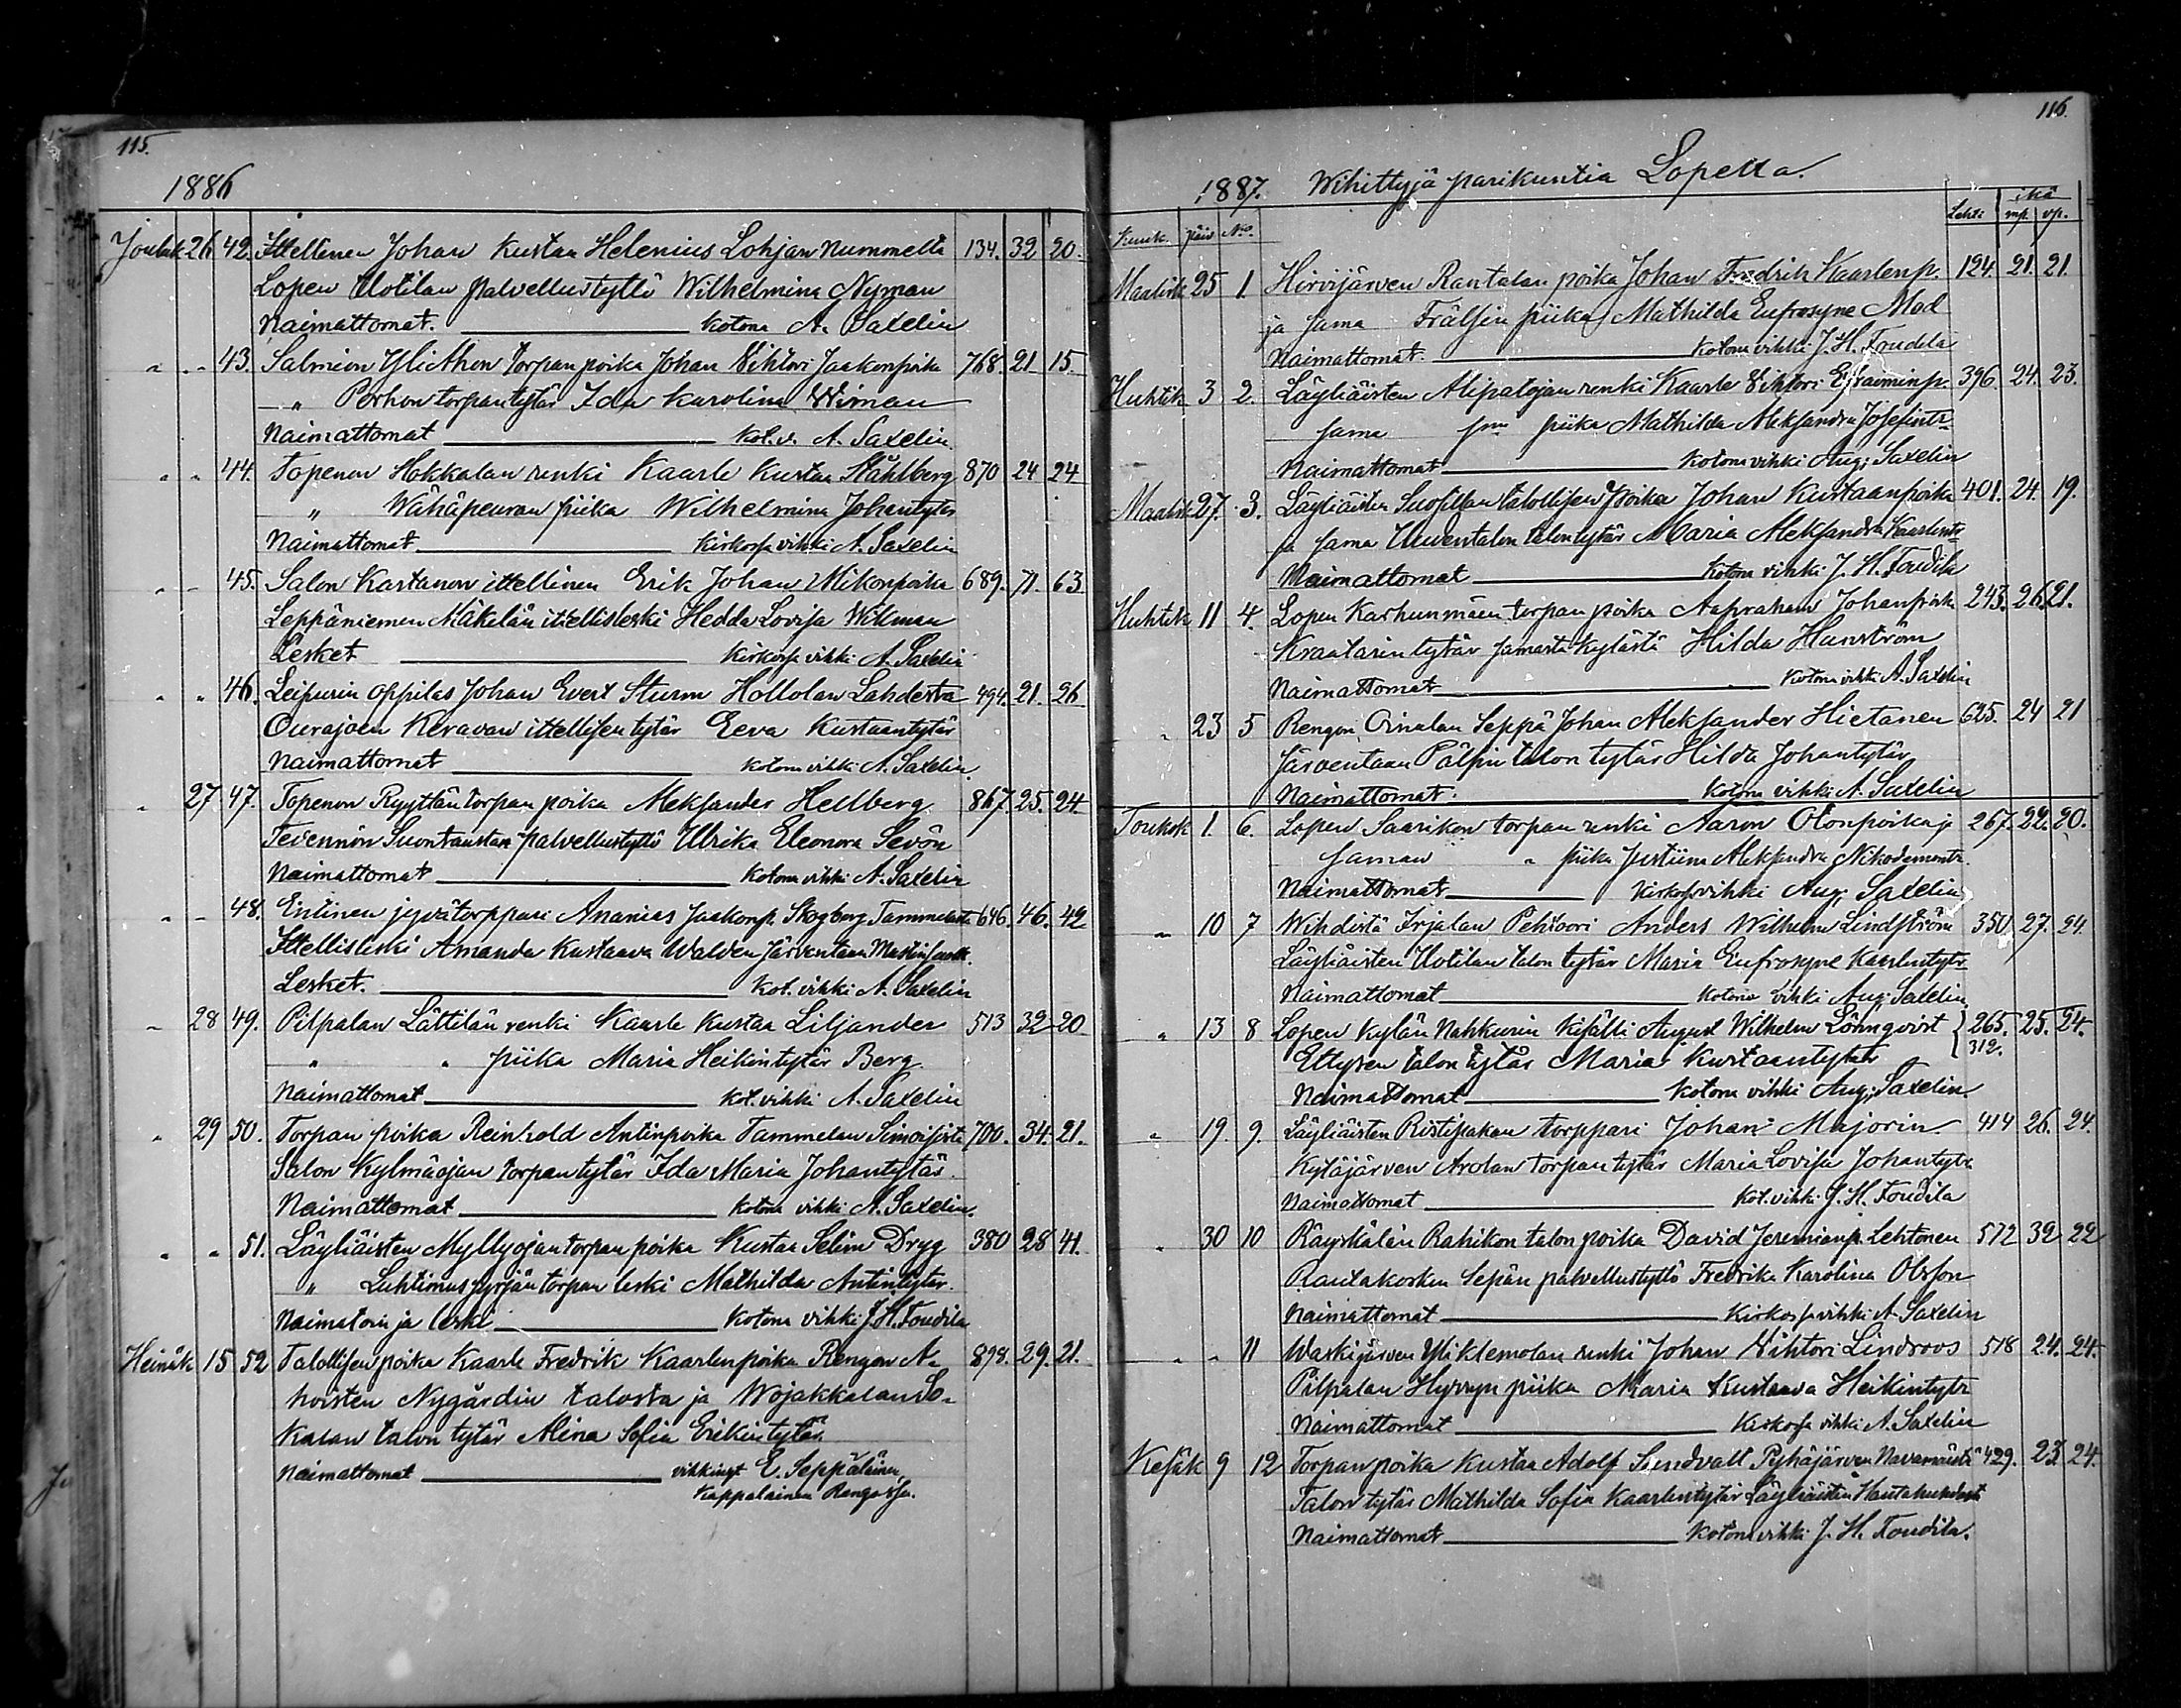 115.
1886
Jouluk 26 42. Ittellinen Johan Kustaa Helenius Lohjan Nummelta 134. 32 20.
Lopen Uotilan palvellustyttö Wilhelmina Nyman
Naimattomat. kotona A. Saxelin
" " 43. Salmion Yliethon torpan poika Johan Vihtori Jaakonpoika 768. 21 15
" Porhon torpantytär Ida Karolina Wiman
Naimattomat kot. v. A. Saxelin
" " 44. Topenon Hokkalan renki Kaarle Kustaa Ståhlberg 870 24 24
" Wähäpeuran piika Wilhelmina Johantytär
Naimattomat kirkosa vihki A. Saxelin
" " 45. Salon Kartanon ittellinen Erik Johan Mikonpoika 689. 71. 63
Leppäniemen Mäkelän ittellisleski Hedda Lovisa Wikman
Lesket kirkosa vihki A. Saxelin
" " 46. Leipurin oppilas Johan Evert Sturm Hollolan Lahdesta 494. 21. 26
Ourajoen Keravan ittellisen tytär Eeva Kustaantytär
Naimattomat kotona vihki A. Saxelin
" 27 47. Topenon Ryyttän torpan poika Aleksander Hellberg 867. 25. 24.
Tevennön Suontaustan palvellustyttö Ulrika Eleonora Sevön
Naimattomat kotona vihki A. Saxelin
" " 48. Entinen jyvätorppari Ananias Jaakonp. Skogberg Tammelasta 646. 46. 42
Ittellisleski Amanda Kustaava Walden Järventaan
Lesket. kot. vihki A. Saxelin
" 28 49. Pilpalan Lättilän renki Kaarle Kustaa Liljander 513 32 20
" " piika Maria Heikintytär Berg.
Naimattomat kot. vihki A. Saxelin
" 29 50. Torpan poika Reinhold Antinpoika Tammelan 700. 34. 21.
Salon Kylmäojan torpan tytär Ida Maria Johantytär.
Naimattomat kotona vihki A. Saxelin.
" " 51. Läyliäisten Myllyojan torpan poika Kustaa Selim Dryg 380 28 41.
" torpan leski Mathilda Antintytär.
Naimatoin ja leski kotona vihki J. H. Toudila
Heinäk 15 52 Talollisen poika Kaarle Fredrik Kaarlenpoika Rengon A-
hoisten Nygårdin talosta ja Wojakkalan So- 898. 29. 21.
kalan talon tytär Alina Sofia Erikintytär
Naimattomat vihkinyt E. Seppäläinen,
Kappalainen Rengosa.
116.
1887. Wihittyjä parikuntia Lopella.
Kuuk. Päiv No. Lehti ikä mp. vp.
Maalisk 25 1. Hirvijärven Rantalan poika Johan Fredrik Kaarlenp. 124. 21. 21.
ja sama Frälsin piika Mathilda Eufrosyne Mod
Naimattomat. kotona vihki J. H. Toudila
Huhtik 3 2. Läyliäisten Alipatojan renki Kaarle Vihtori Efraiminp. 396. 24. 23.
sama piika Mathilda Aleksandra Josefintr.
Naimattomat kotona vihki Aug. Saxelin
Maalisk 27. 3. Läyliäisten talollisen poika Johan Kustaanpoika 401. 24. 19.
ja sama Uudentalon talontytär Maria Aleksandra Kaarlentr.
Naimattomat kotona vihki J. H. Toudila
Huhtik 11 4. Lopen Karhunmäen torpan poika Aaprahami Johanpoika 243. 26. 21.
Kraatarin tytär samasta kylästä Hilda Hurström
Naimattomat kotona vihki A. Saxelin
" 23 5 Rengon Oinalan Seppä Johan Aleksander Hietanen 625. 24 21
Järventaan Pälsin talon tytär Hilda Johantytär
Naimattomat. kotona vihki A. Saxelin
Toukok 1. 6. Lopen Saarikon torpan renki Aaron Otonpoika ja 267. 22. 20.
Saman " piika Justiina Aleksandra Nikodemuntr.
Naimattomat kirkosa vihki Aug. Saxelin
" 10 7 Wihdistä Irjalan Pehtoori Anders Wilhelm Lindström 350 27. 24.
Läyliäisten Uotilan talon tytär Maria Eufrosyne Kaarlentytr
Naimattomat kotona vihki Aug. Saxelin
" 13 8 Lopen kylän Nahkurin kisälli August Wilhelm Lönnqvist 265. 312. 25. 24.
talon tytär Maria Kustaantytär
Naimattomat kotona vihki Aug. Saxelin.
" 19. 9. Läyliäisten Ristipakan torppari Johan Majorin 414 26. 24.
Kytäjärven Arolan torpan tytär Maria Lovisa Johantytr
Naimattomat kot. vihki J. H. Toudila
" 30 10 Räyskälän Rahikon talon poika David Jeremianp. Lehtonen 572 39 22
Rautakosken Sepän palvellustyttö Fredrika Karolina Olsson
Naimattomat kirkosa vihki A. Saxelin
" " 11 Waskijärven renki Johan Vihtori Lindroos 518 24. 24.
Pilpalan Hyvryn piika Maria Kustaava Heikintytr
Naimattomat kirkosa vihki A. Saxelin
Kesäk 9 12 Torpan poika Kustaa Adolf Sundvall Pyhäjärven 429. 23. 24.
Talon tytär Mathilda Sofia Kaarlentytär Läyliäisten
Naimattomat kotona vihki J. H. Toudila.